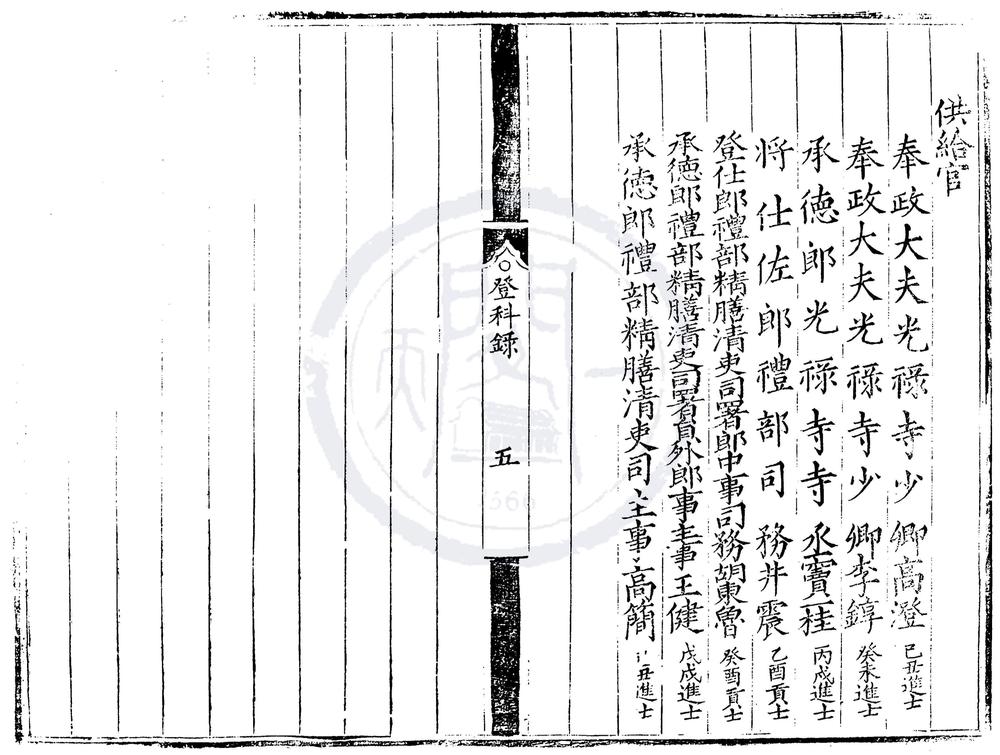 供給官
奉政大夫光祿寺少卿高澄 己丑進士
奉政大夫光祿寺少卿李錞 癸未進士
承德郎光祿寺寺丞竇一桂 丙戌進士
將仕佐郎禮部司務井震 乙酉貢士
登仕郎禮部精膳清吏司署郎中事司務胡東魯 癸酉貢士
承德郎禮部精膳清吏司署員外郎事主事王健 戊戌進士
承德郎禮部精膳清吏司主事高簡 丑進士
登科錄
五
天
一
閣
1566